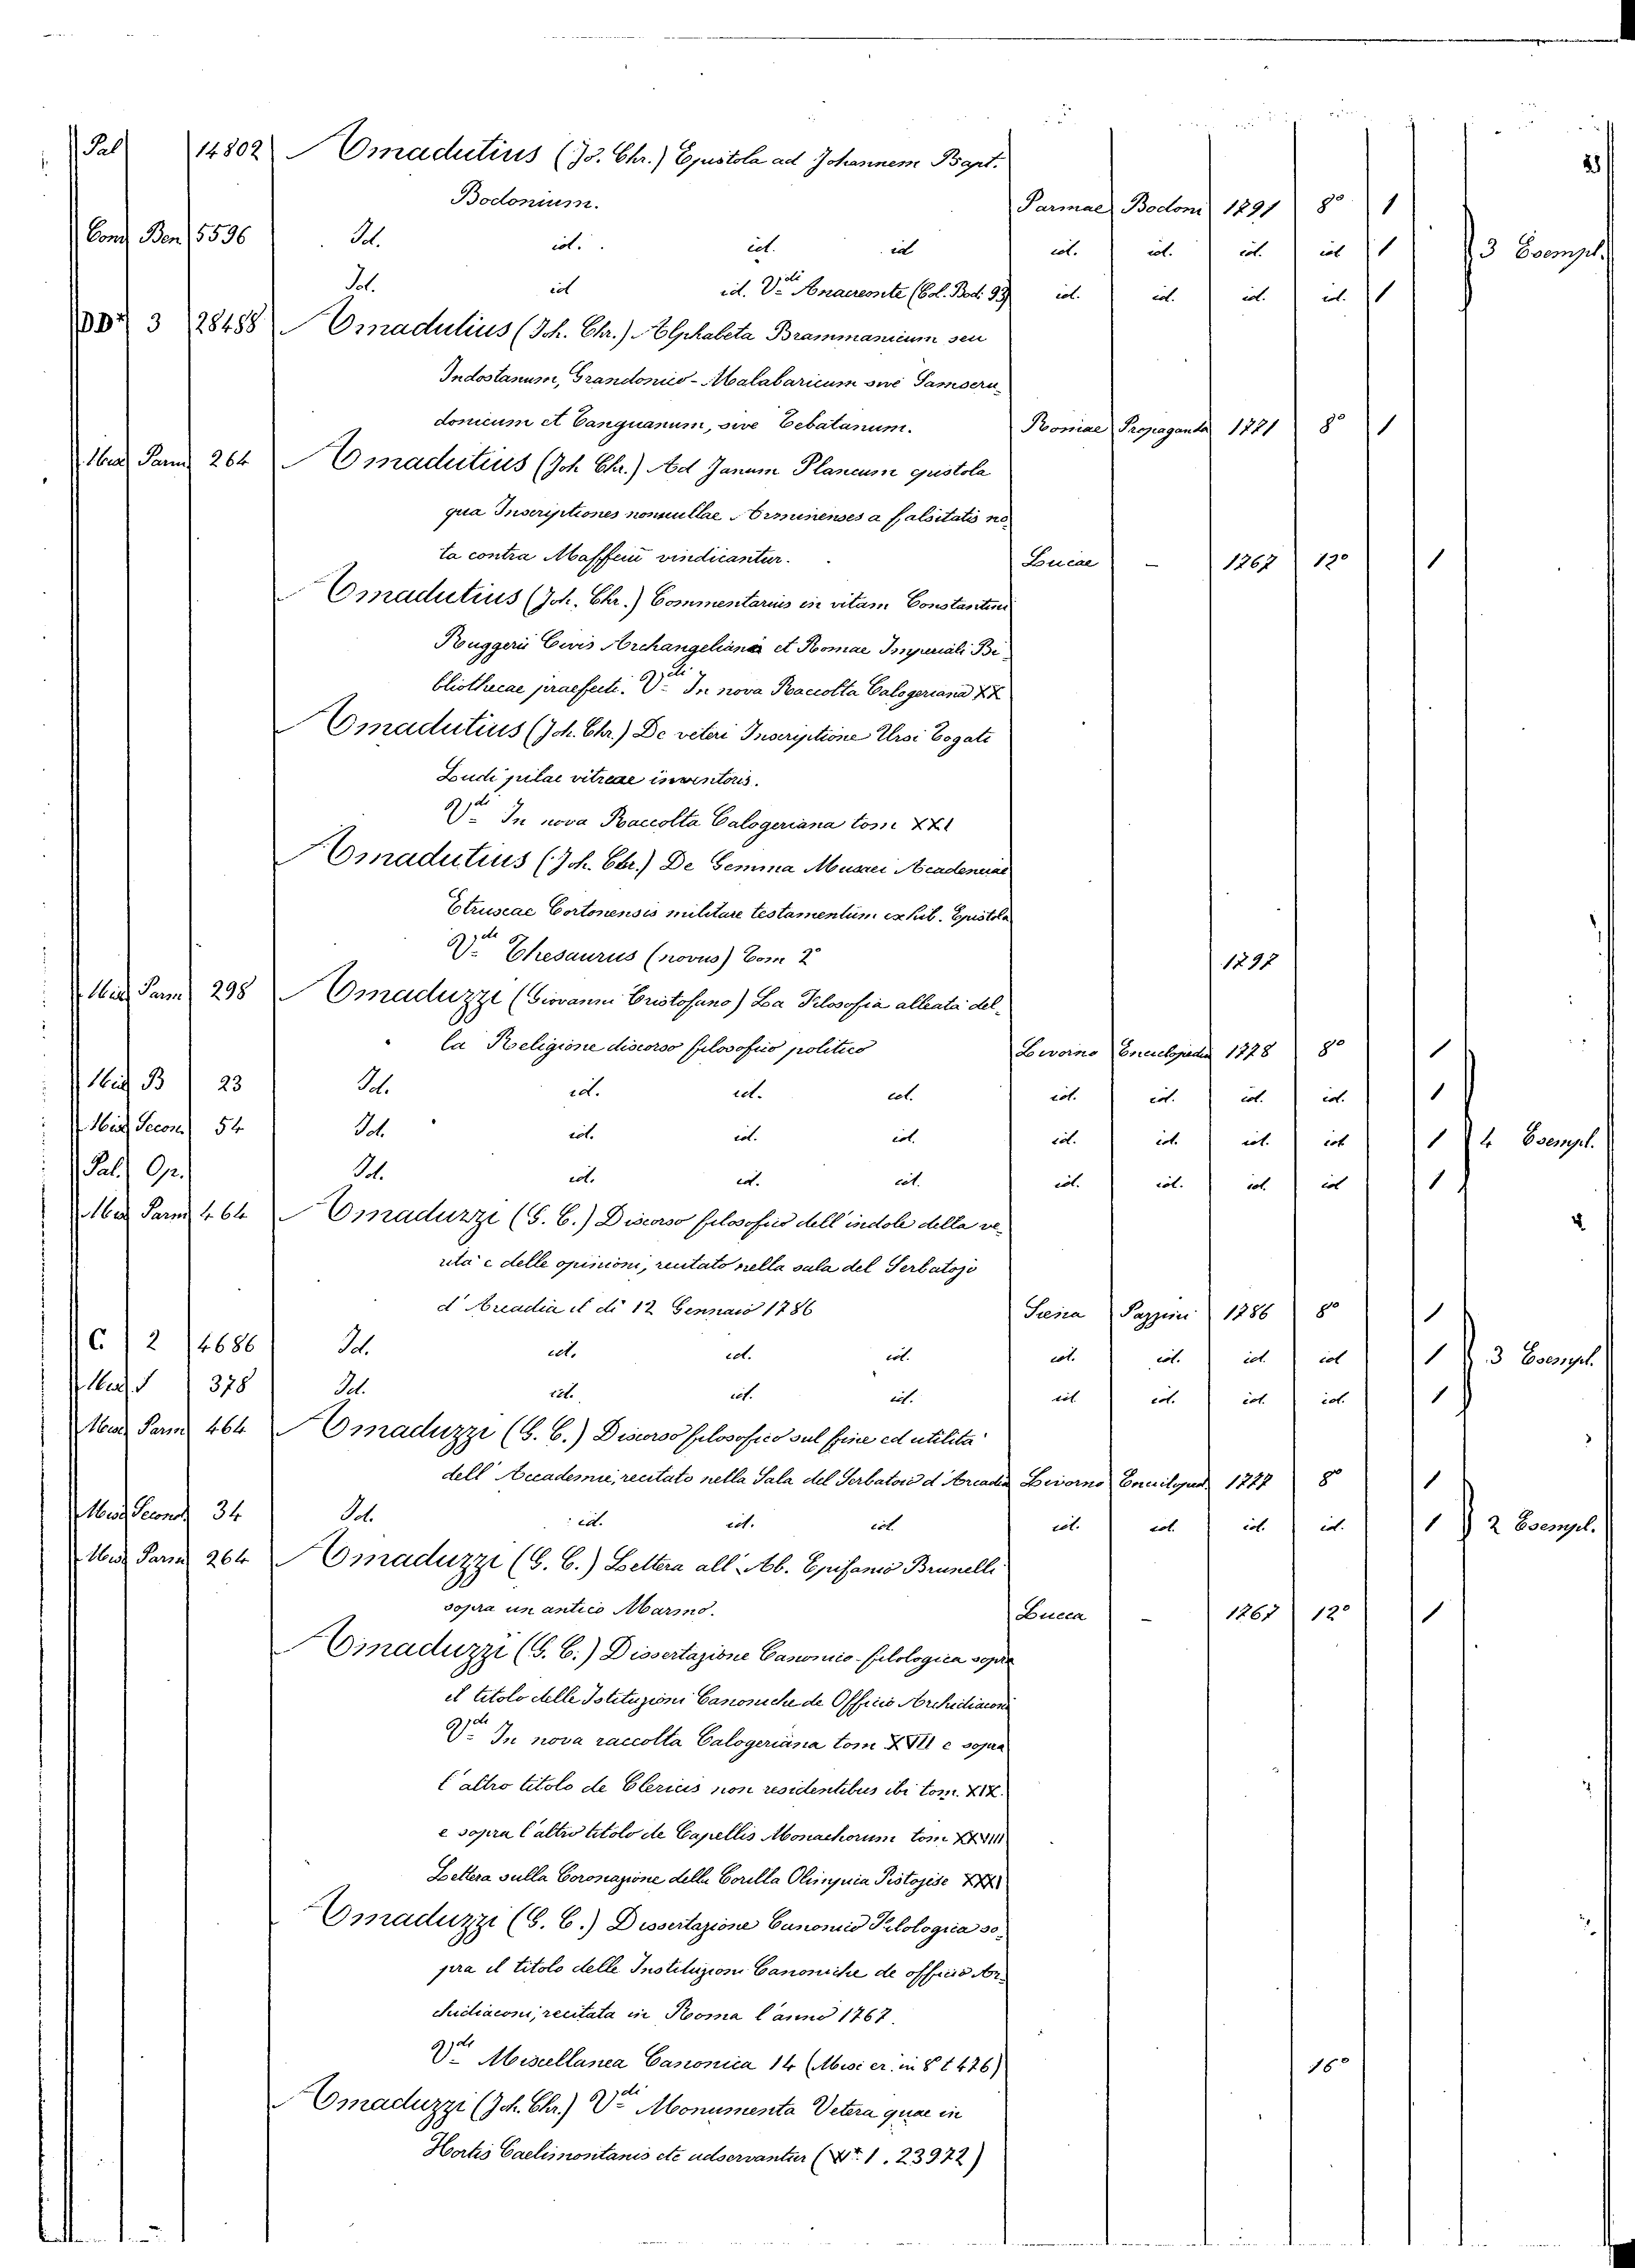 Pal 14802 Amadutius (Jo. Chr.) Epistola ad Johannem Bapt.
Bodonium. Parmae Bodoni 1791 8° 1
Cond Ben 5596 Id. id. id. id id. id. id. id 1 3 Esempl.
Id. id id. V.di Anacreonte (Col. Bod. 93) id. id. id. id. 1
3 28488 Amadutius (Joh. Chr.) Alphabeta Brammanicum seu
Indostanum, Grandonico-Malabaricum sive Samscru-
donicum et Tanguanum, sive Tebatanum. Romae Propaganda 1771 8° 1
Misc Parm 264 Amadutius (Joh Chr.) Ad Janum Plancum epistola
qua Inscriptiones nonnullae Ariminenses a falsitatis no
ta contra Maffeiu vindicantur. Lucae - 1767 12° 1
Amadutius (Joh. Chr.) Commentarius in vitam Constantini
Ruggeri Civis Archangeliana et Romae Imperiali Bi
bliothecae praefecti. V.di In nova Raccolta Calogeriana XX
Amadutius (Joh. Chr.) De veteri Inscriptione Ursi Togati
Ludi pilae vitreae inventoris.
V.di In nova Raccolta Calogeriana tom XXI
Amadutius (Joh. Chr.) De Gemma Musaei Academiae
Etruscae Cortonensis militare testamentum exhib. Epistola
V.di Thesaurus (novus) Tom 2° 1797
Misc Parm 298 Amaduzzi (Giovanni Cristofano) La Filosofia alleata del-
la Religione discorso filosofico politico Livorno Enciclopedia 1778 8° 1
Misc B 23 Id. id. id. id. id. id. id. id. 1
Misc Second 54 Id. id. id. id. id. id. id. id 1 4 Esempl.
Pal. Op. Id. id. id. id. id. id. id. id 1
Misc Parm 464 Amaduzzi (G. C.) Discorso filosofico dell'indole della ve-
rità e delle opinioni, recitato nella sala del Serbatojo
d'Arcadia il dì 12 Gennaio 1786 Siena Pazzini 1786 8° 1
C 2 4686 Id. id. id. id. id. id. id. id 1 3 Esempl.
378 Id. id. id. id. id id. id. id. 1
Misc Parm 464 Amaduzzi (G. C.) Discorso filosofico sul fine ed utilità
dell'Accademie, recitato nella Sala del Serbatoio d'Arcadia Livorno Enciloped. 1777 8° 1
Misc Second 34 Id. id. id. id. id. id. id. id. 1 2 Esempl.
Misc Parm 264 Amaduzzi (G. C.) Lettera all'Ab. Epifanio Brunelli
sopra un antico Marmo. Lucca - 1767 12° 1
Amaduzzi (G. C.) Dissertazione Canonico-filologica sopra
il titolo delle Istituzioni Canoniche de Officio Archidiaconi
V.di In nova raccolta Calogeriana tom XVII e sopra
l'altro titolo de Clericis non residentibus ibi tom. XIX.
e sopra l'altro titolo de Capellis Monachorum tom XXVIII
Lettera sulla Coronazione della Corilla Olimpia Pistojese XXXI
Amaduzzi (G. C.) Dissertazione Canonico Filologica so-
pra il titolo delle Instituzioni Canoniche de officio Ar-
chidiaconi, recitata in Roma l'anno 1767.
V.di Miscellanea Canonica 14 (Misc er. in 8° t 426) 16°
Amaduzzi (Joh. Chr.) V.di Monumenta Vetera quae in
Hortis Caelimontanis etc adservantur ( 1. 23972)